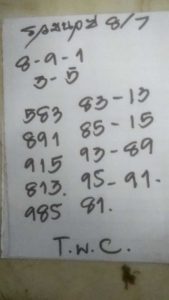 8/7
8-9-1
3-5
583 83-13
891 85-15
915 93-89
813. 95-91.
985 81.
T.W.C.